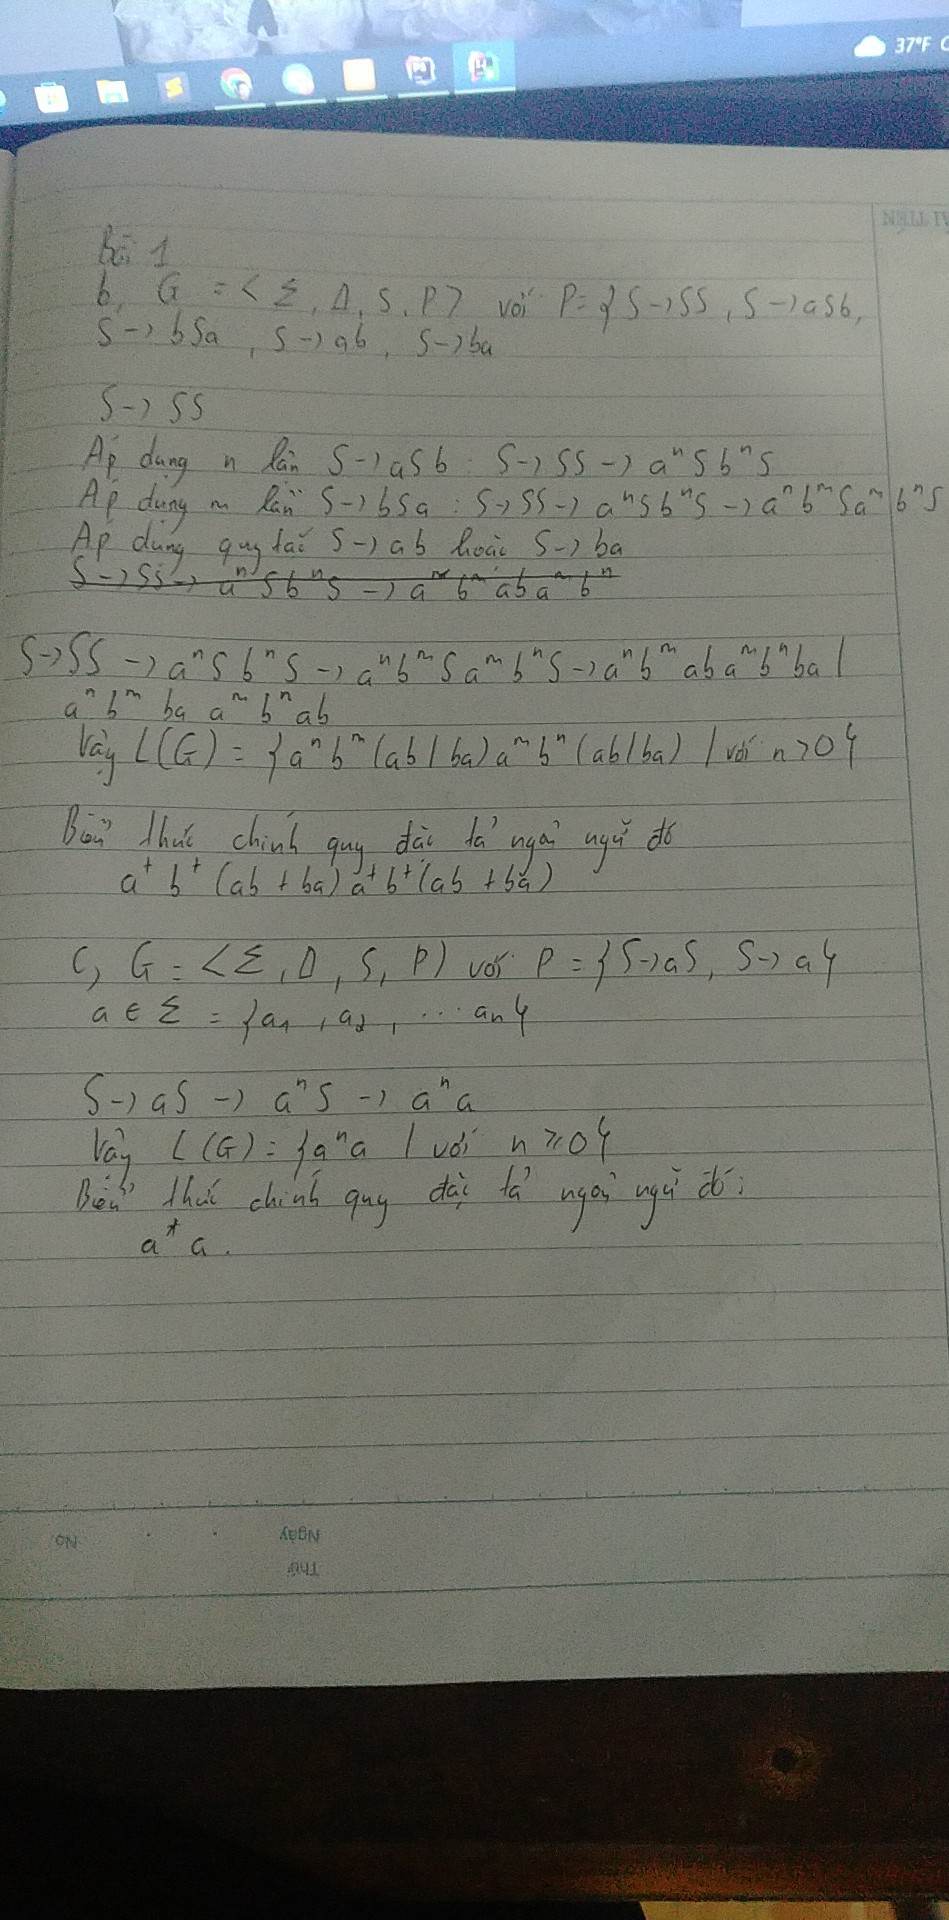 37°F C
Bài 1
b, G = < Σ, Δ, S, P > với P = { S → SS, S → aSb,
S → bSa, S → ab, S → ba
S → SS
Áp dụng n lần S → aSb : S → SS → aⁿSbⁿS
Áp dụng m lần S → bSa : S → SS → aⁿSbⁿS → aⁿbᵐSaᵐbⁿS
Áp dụng quy tắc S → ab hoặc S → ba
S → SS → aⁿSbⁿS → aⁿbᵐabaᵐbⁿ
S → SS → aⁿSbⁿS → aⁿbᵐSaᵐbⁿS → aⁿbᵐabaᵐbⁿba |
aⁿbᵐ ba aᵐbⁿab
Vậy L(G) = { aⁿbᵐ(ab/ba)aᵐbⁿ(ab/ba) / với n > 0 }
Biểu thức chính quy đặc tả ngôn ngữ đó
a⁺b⁺(ab + ba)a⁺b⁺(ab + ba)
c, G = < Σ, Δ, S, P ) với P = { S → aS, S → a }
a ∈ Σ = { a₁, a₂, ... aₙ }
S → aS → aⁿS → aⁿa
Vậy L(G) = { aⁿa / với n ≥ 0 }
Biểu thức chính quy đặc tả ngôn ngữ đó:
a*a.
No.
Ngày
Thứ